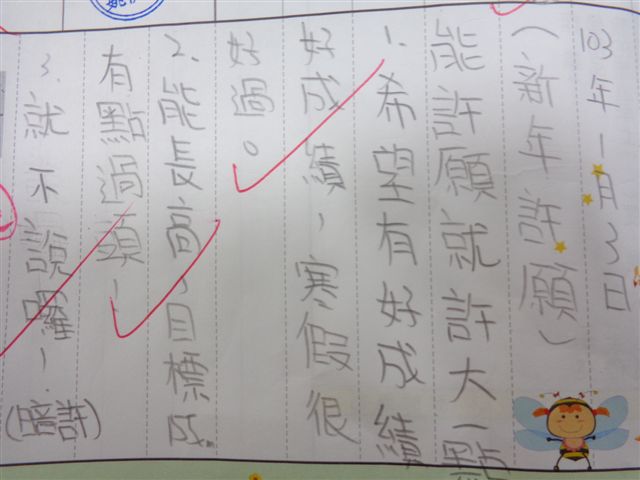 103年1月3日
(新年許願)
能許願就許大一點
1.希望有好成績
好成績,寒假很
好過。
2.能長高,目標
有點過頭!
3.就不說囉!
(暗許)